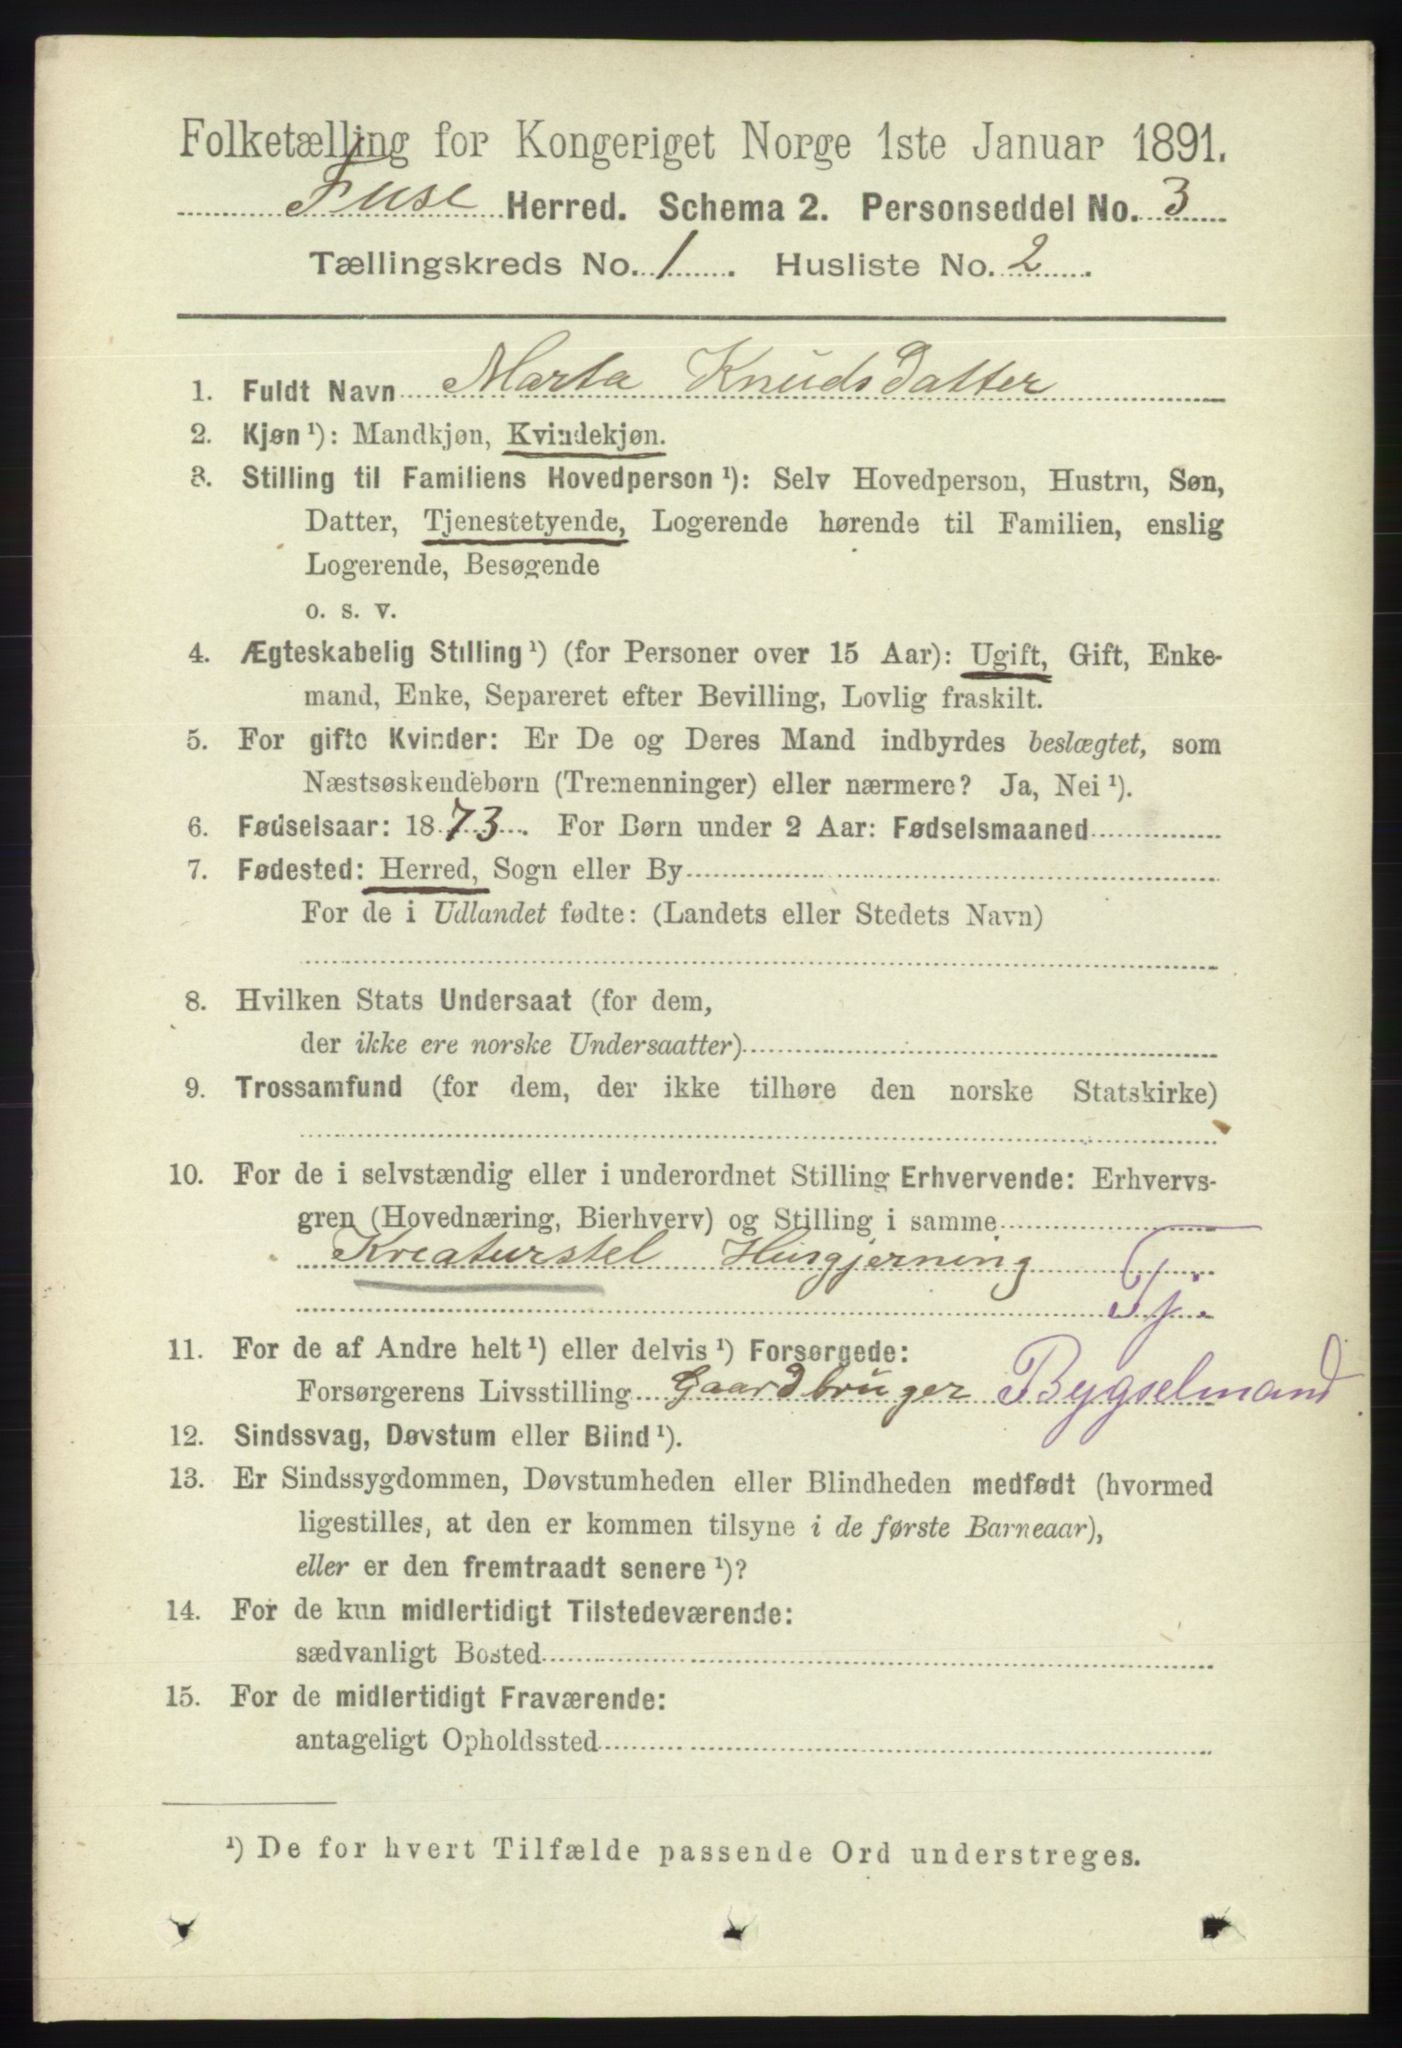 Folketælling for Kongeriget Norge 1ste Januar 1891.
Fuse Herred. Schema 2. Personseddel No. 3
Tællingskreds No. 1. Husliste No. 2.
1. Fuldt Navn Marta Knudsdatter
2. Kjøn ¹): Mandkjøn, Kvindekjøn.
3. Stilling til Familiens Hovedperson ¹): Selv Hovedperson, Hustru, Søn,
Datter, Tjenestetyende, Logerende hørende til Familien, enslig
Logerende, Besøgende
o. s. v.
4. Ægteskabelig Stilling ¹) (for Personer over 15 Aar): Ugift, Gift, Enke-
mand, Enke, Separeret efter Bevilling, Lovlig fraskilt.
5. For gifte Kvinder: Er De og Deres Mand indbyrdes beslægtet, som
Næstsøskendebørn (Tremenninger) eller nærmere? Ja, Nei ¹).
6. Fødselsaar: 1873. For Børn under 2 Aar: Fødselsmaaned
7. Fødested: Herred, Sogn eller By
For de i Udlandet fødte: (Landets eller Stedets Navn)
8. Hvilken Stats Undersaat (for dem,
der ikke ere norske Undersaatter)
9. Trossamfund (for dem, der ikke tilhøre den norske Statskirke)
10. For de i selvstændig eller i underordnet Stilling Erhvervende: Erhvervs-
gren (Hovednæring, Bierhverv) og Stilling i samme
Kreaturstel Husgjerning
Tj.
11. For de af Andre helt ¹) eller delvis ¹) Forsørgede:
Forsørgerens Livsstilling Gaardbruger Bygselmand
12. Sindssvag, Døvstum eller Blind ¹).
13. Er Sindssygdommen, Døvstumheden eller Blindheden medfødt (hvormed
ligestilles, at den er kommen tilsyne i de første Barneaar),
eller er den fremtraadt senere ¹)?
14. For de kun midlertidigt Tilstedeværende:
sædvanligt Bosted
15. For de midlertidigt Fraværende:
antageligt Opholdssted
¹) De for hvert Tilfælde passende Ord understreges.